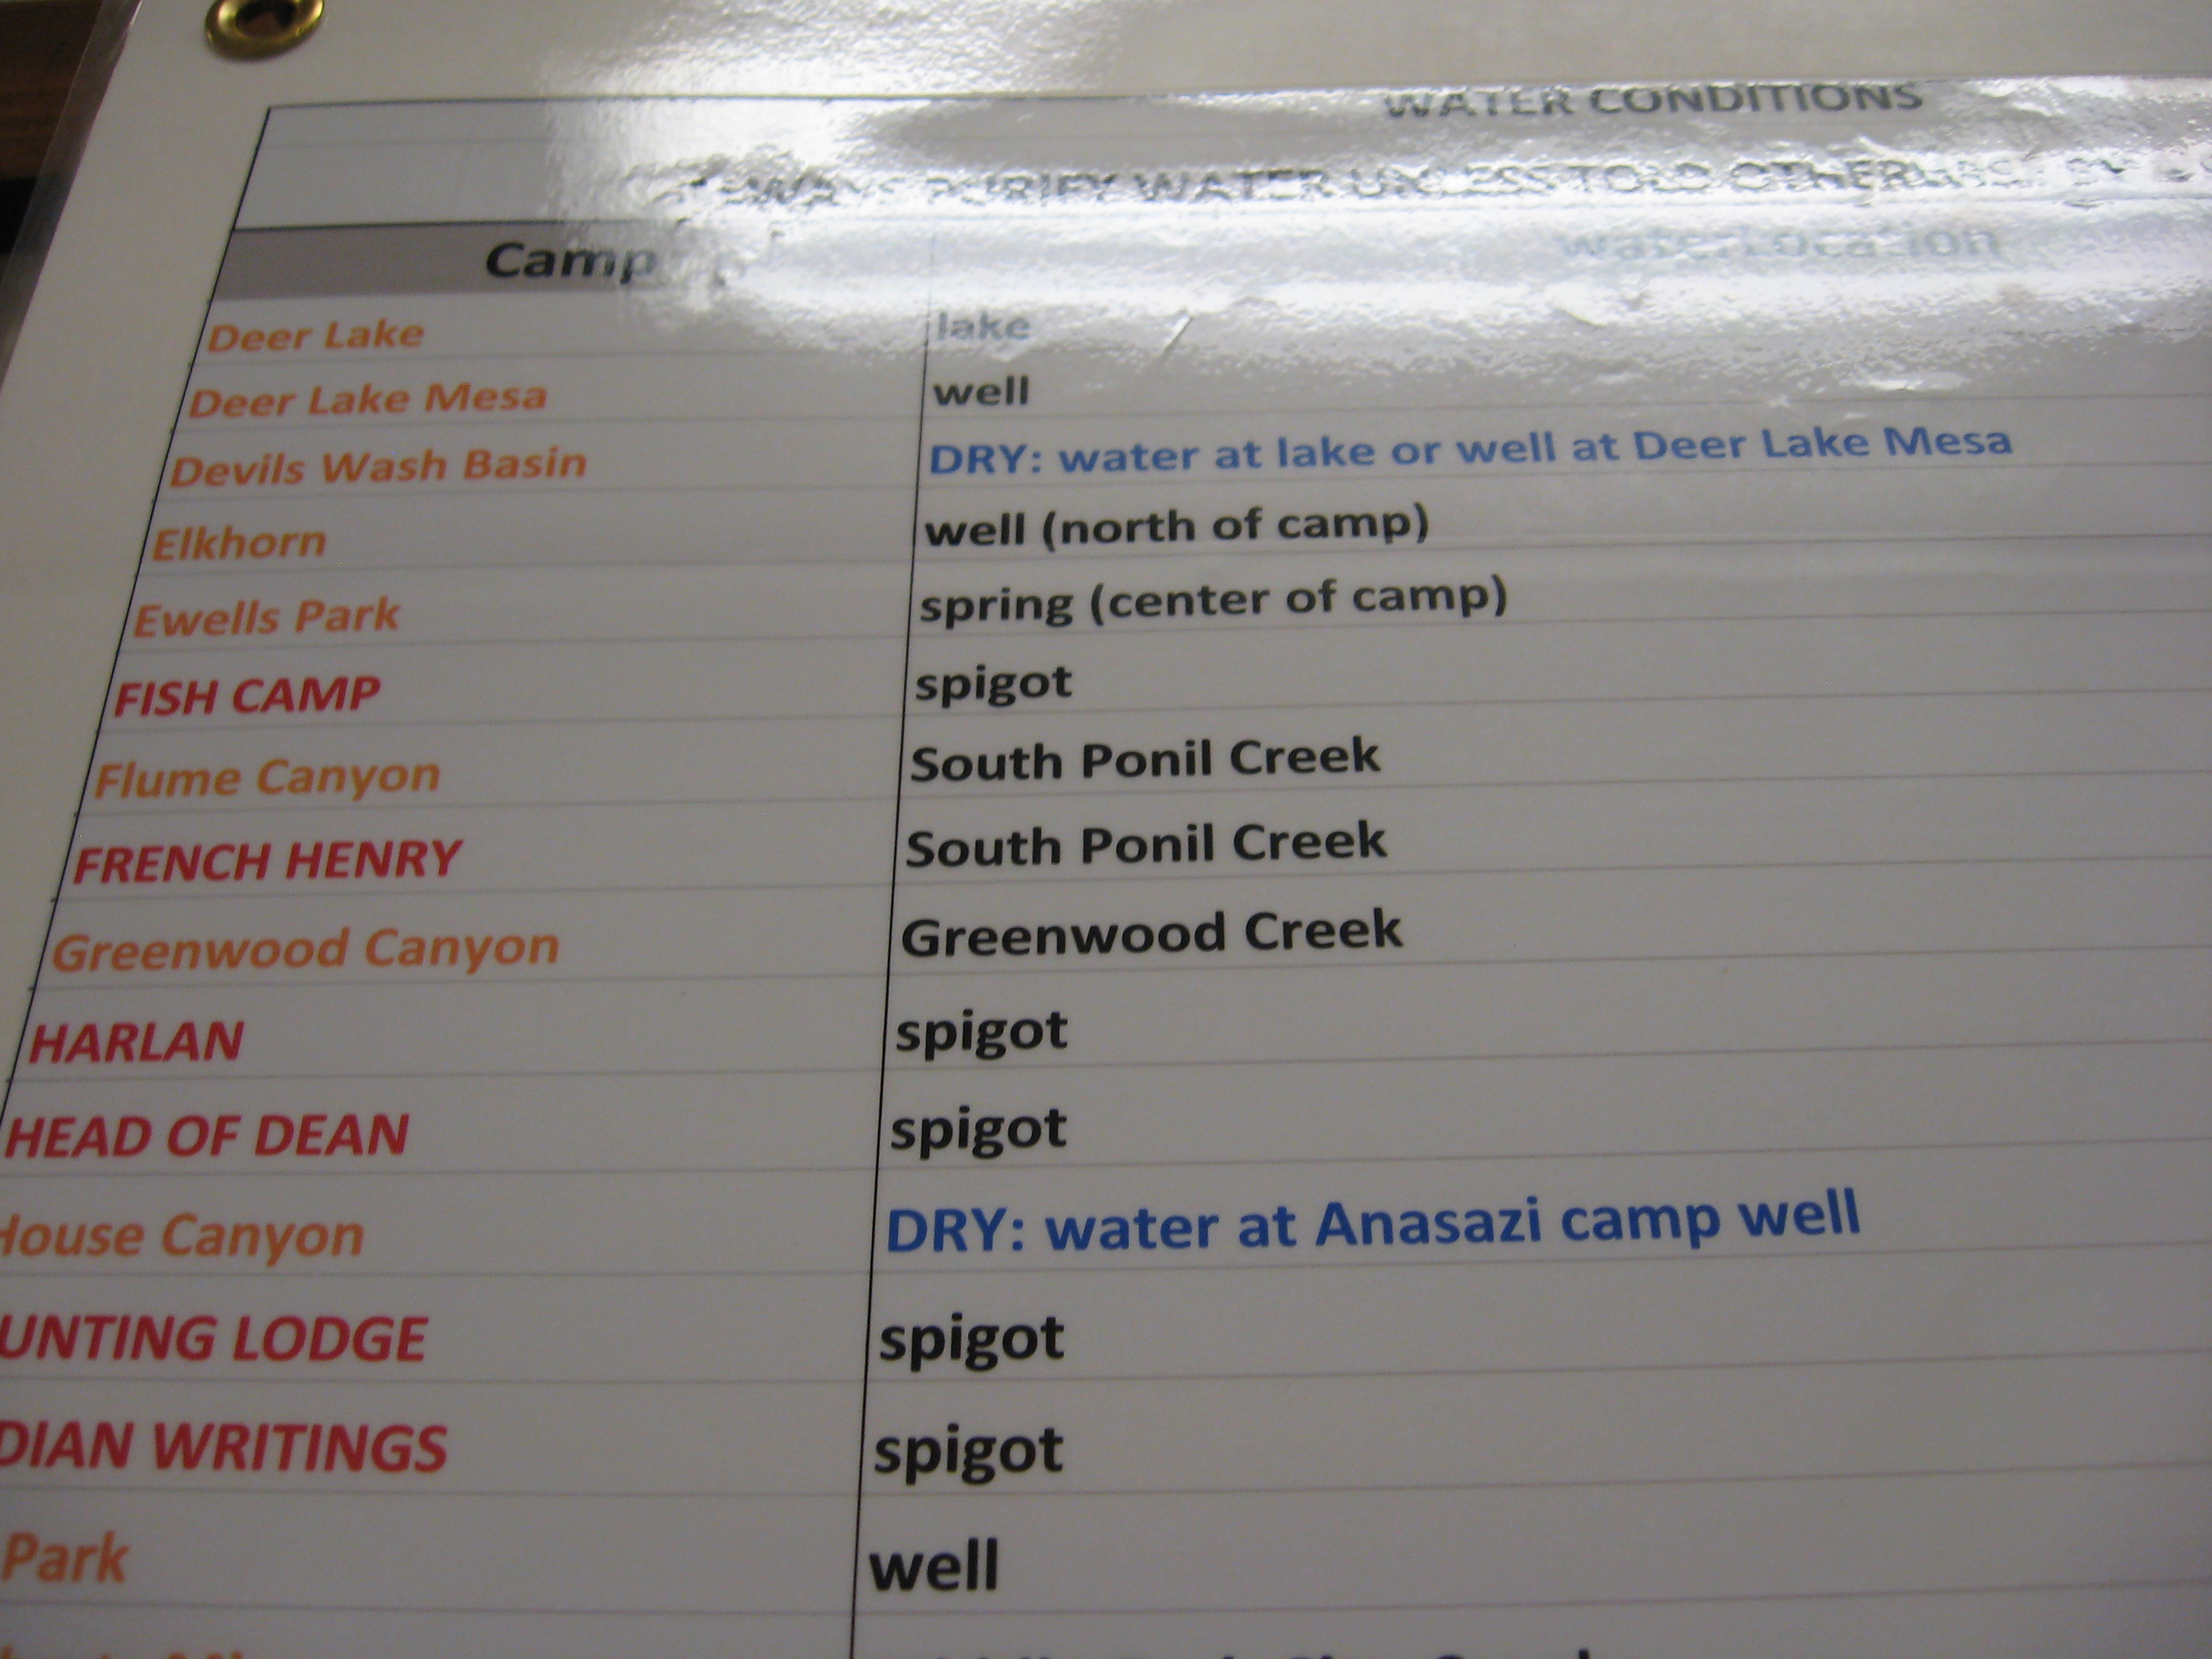 WATER CONDITIONS
PURIFY WATER UNLESS TOLD
Camp water Location
Deer Lake lake
Deer Lake Mesa well
Devils Wash Basin DRY: water at lake or well at Deer Lake Mesa
Elkhorn well (north of camp)
Ewells Park spring (center of camp)
FISH CAMP spigot
Flume Canyon South Ponil Creek
FRENCH HENRY South Ponil Creek
Greenwood Canyon Greenwood Creek
HARLAN spigot
HEAD OF DEAN spigot
House Canyon DRY: water at Anasazi camp well
UNTING LODGE spigot
DIAN WRITINGS spigot
Park well